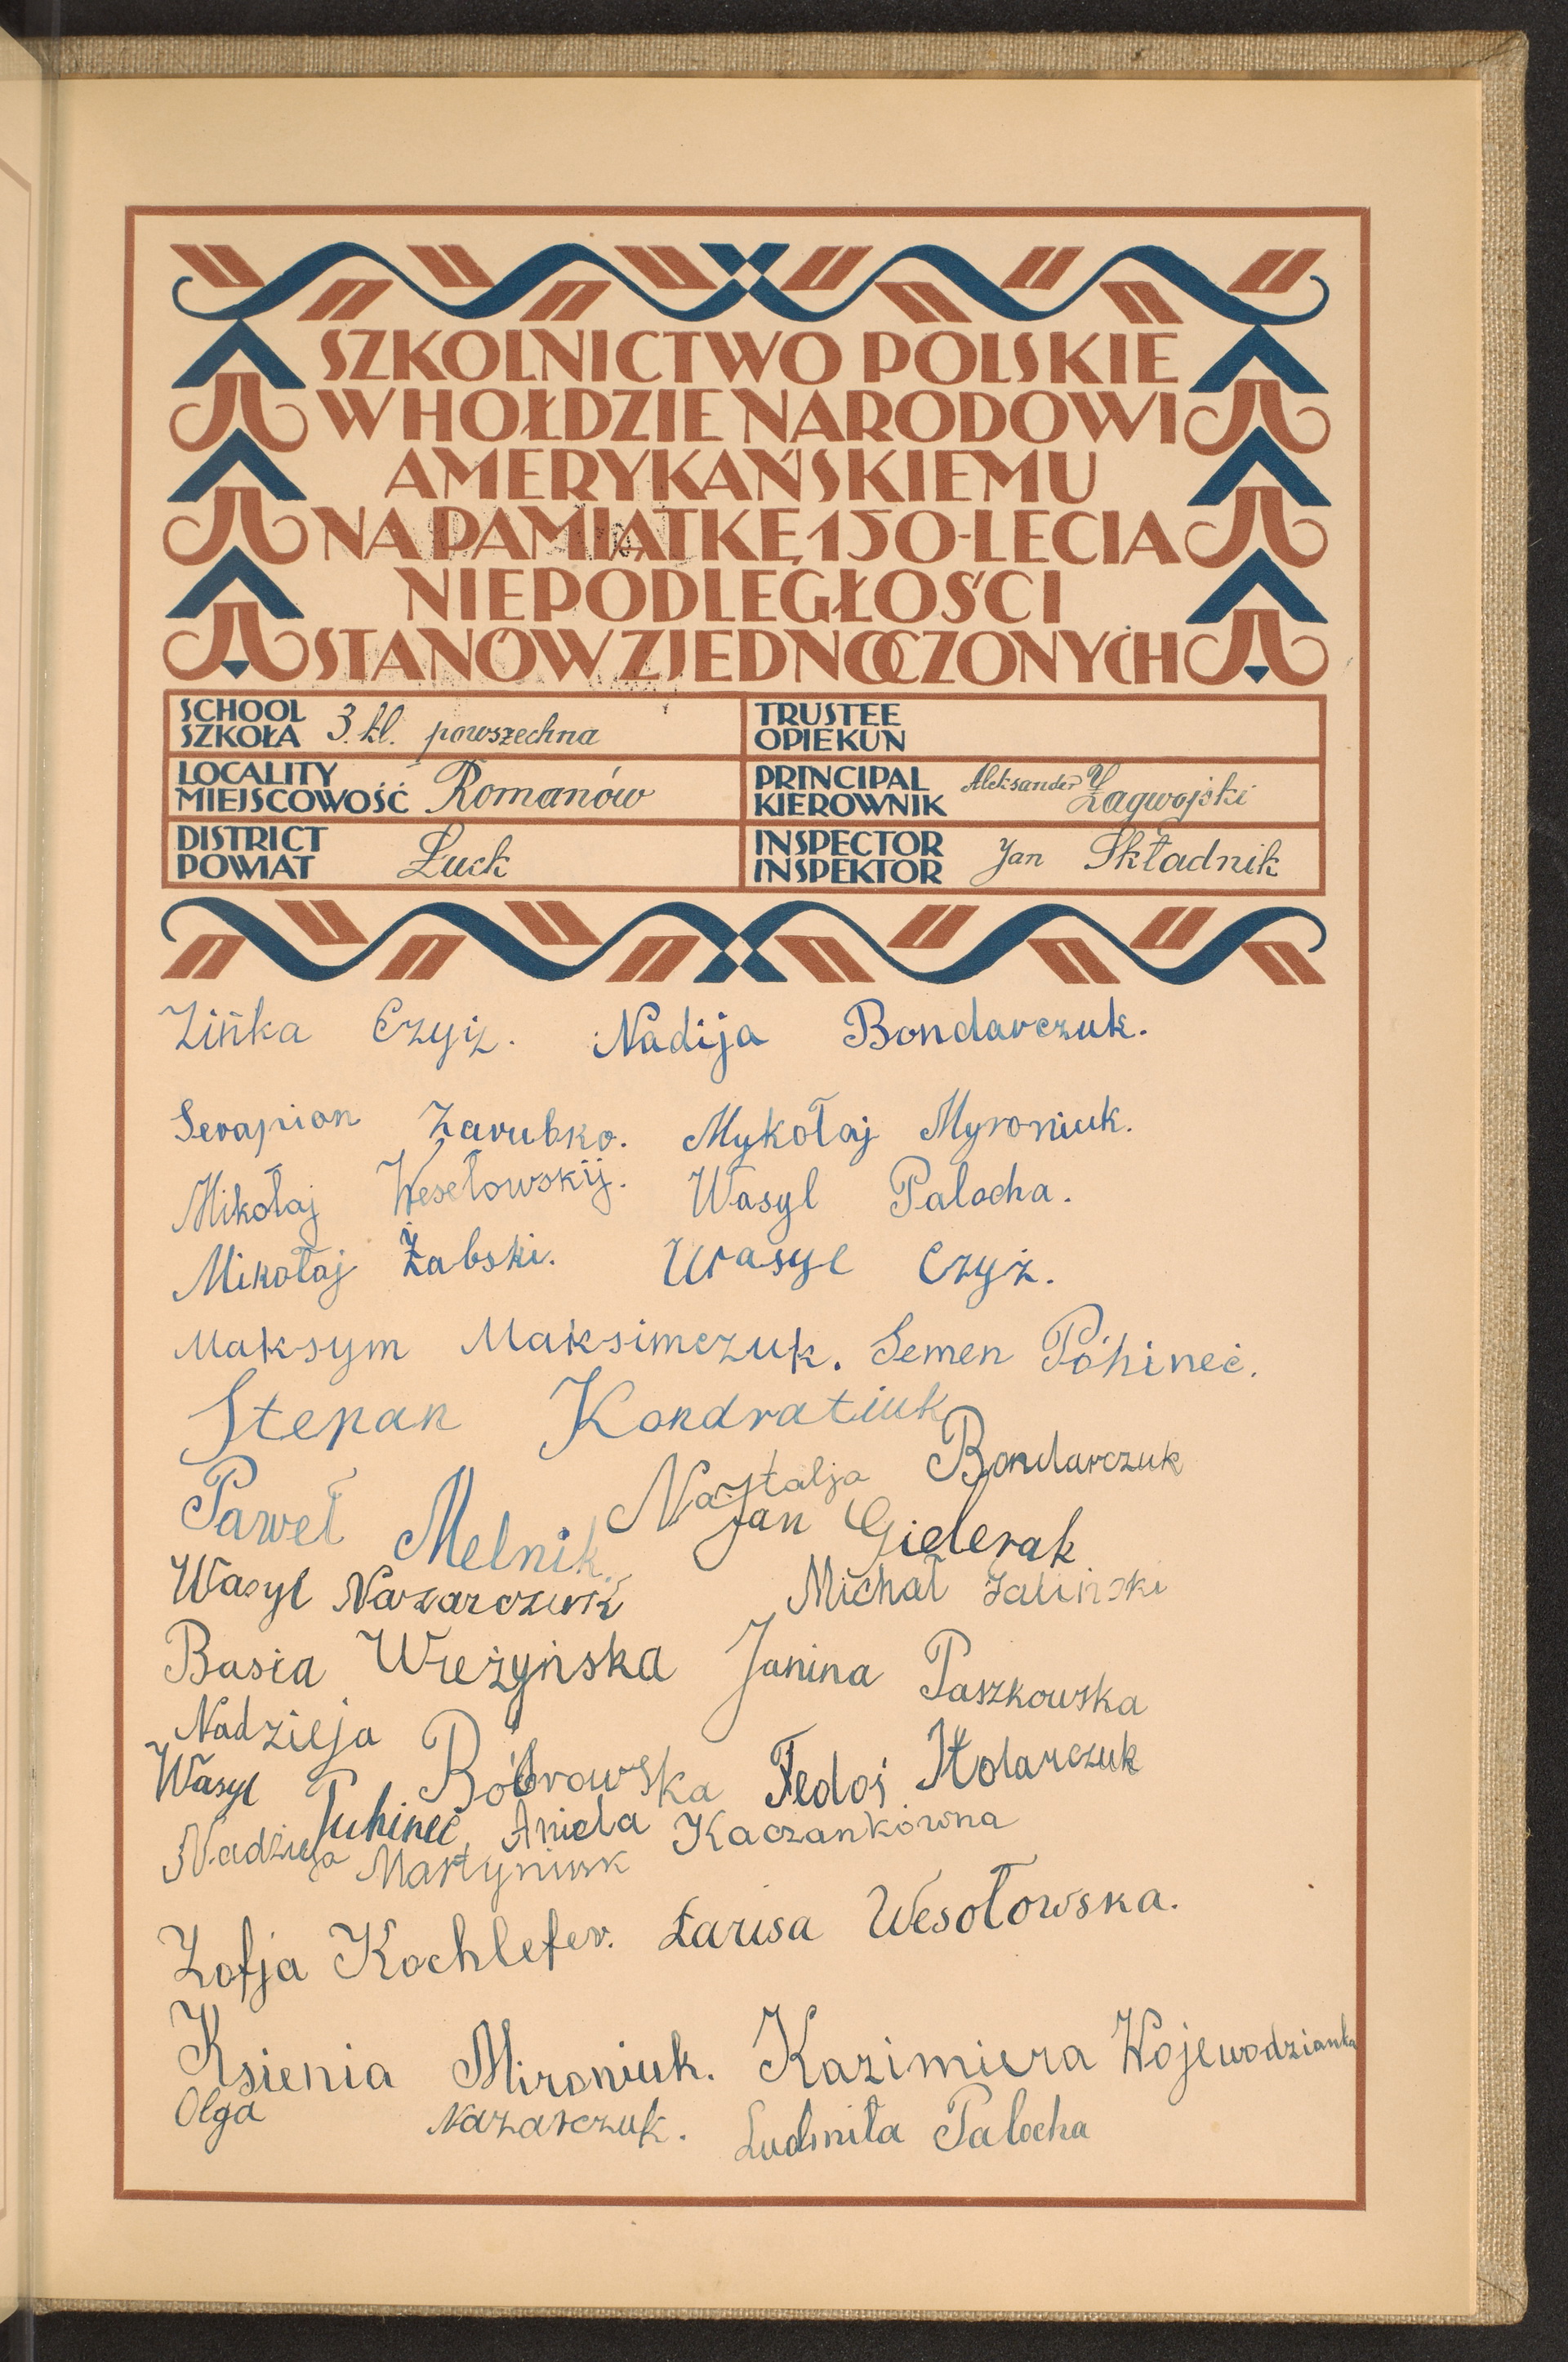 SZKOLNICTWO POLSKIE
W HOŁDZIE NARODOWI
AMERYKAŃSKIEMU
NA PAMIĄTKĘ 150-LECIA
NIEPODLEGŁOŚCI
STANÓW ZJEDNOCZONYCH
SCHOOL
SZKOŁA 3. kl. powszechna
TRUSTEE
OPIEKUN
LOCALITY
MIEJSCOWOŚĆ Romanów
PRINCIPAL
KIEROWNIK Aleksander Żagwojski
DISTRICT
POWIAT Łuck
INSPECTOR
INSPEKTOR Jan Składnik
Zińka Czyiż. Nadija Bondarczuk.
Serapion Zarubko. Mykołaj Myroniuk.
Mikołaj Wesełowskij. Wasyl Palocha.
Mikołaj Żabski. Wasyl Czyż.
Maksym Maksimczuk. Semen Póhineć.
Stepan Kondratiuk
Natalja Bondarczuk
Paweł Melnik. Jan Gielerak
Wasyl Nazarczuk Michał Zaliński
Basia Wreżyńska Janina Paszkowska
Nadzieja Bobrowska Fedoś Stolarczuk
Wasyl Puhineć, Aniela Kaczankówna
Nadzieja Martyniuk
Zofja Kochlefer. Łarisa Wesołowska.
Ksienia Mironiuk. Kazimiera Wojewodzianka
Olga Nazarczuk. Ludmiła Palocha